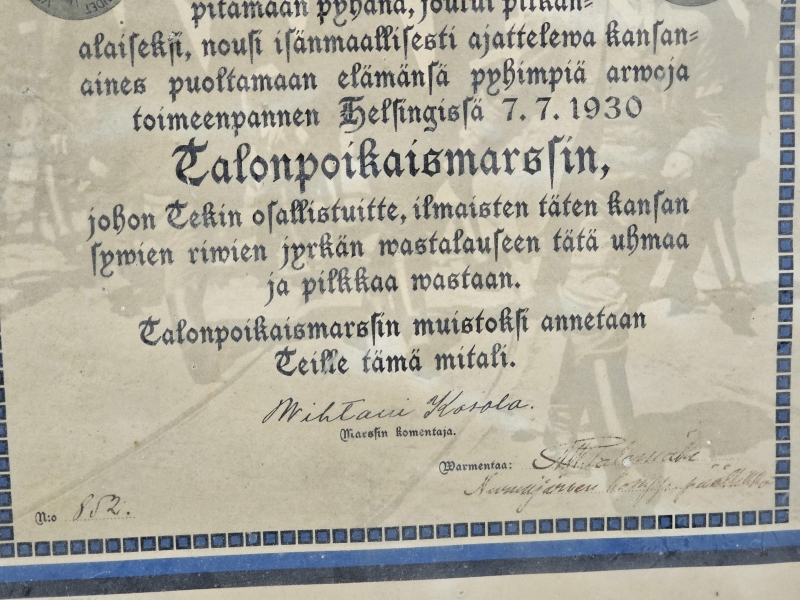 pitamaan pyhänä, joutui pilkan-
alaiseksi, nousi isänmaallisesti ajattelewa kansan-
aines puoltamaan elämänsä pyhimpiä arwoja
toimeenpannen Helsingissä 7. 7. 1930
Talonpoikaismarssin,
johon Tekin osallistuitte, ilmaisten täten kansan
sywien riwien jyrkän wastalauseen tätä uhmaa
ja pilkkaa wastaan.
Talonpoikaismarssin muistoksi annetaan
Teille tämä mitali.
Wihtori Kosola.
Marssin komentaja.
Warmentaa:
Nurmijärven
N:o 852.